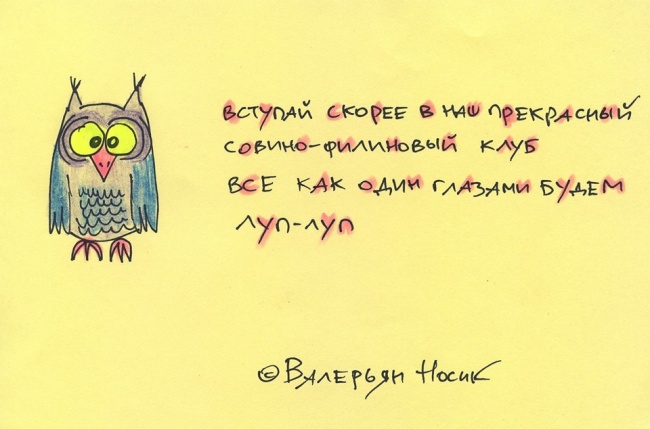 ВСТУПАЙ СКОРЕЕ В НАШ ПРЕКРАСНЫЙ
СОВИНО-ФИЛИНОВЫЙ КЛУБ
ВСЕ КАК ОДИН ГЛАЗАМИ БУДЕМ
ЛУП-ЛУП
© ВАЛЕРЬЯН НОСИК